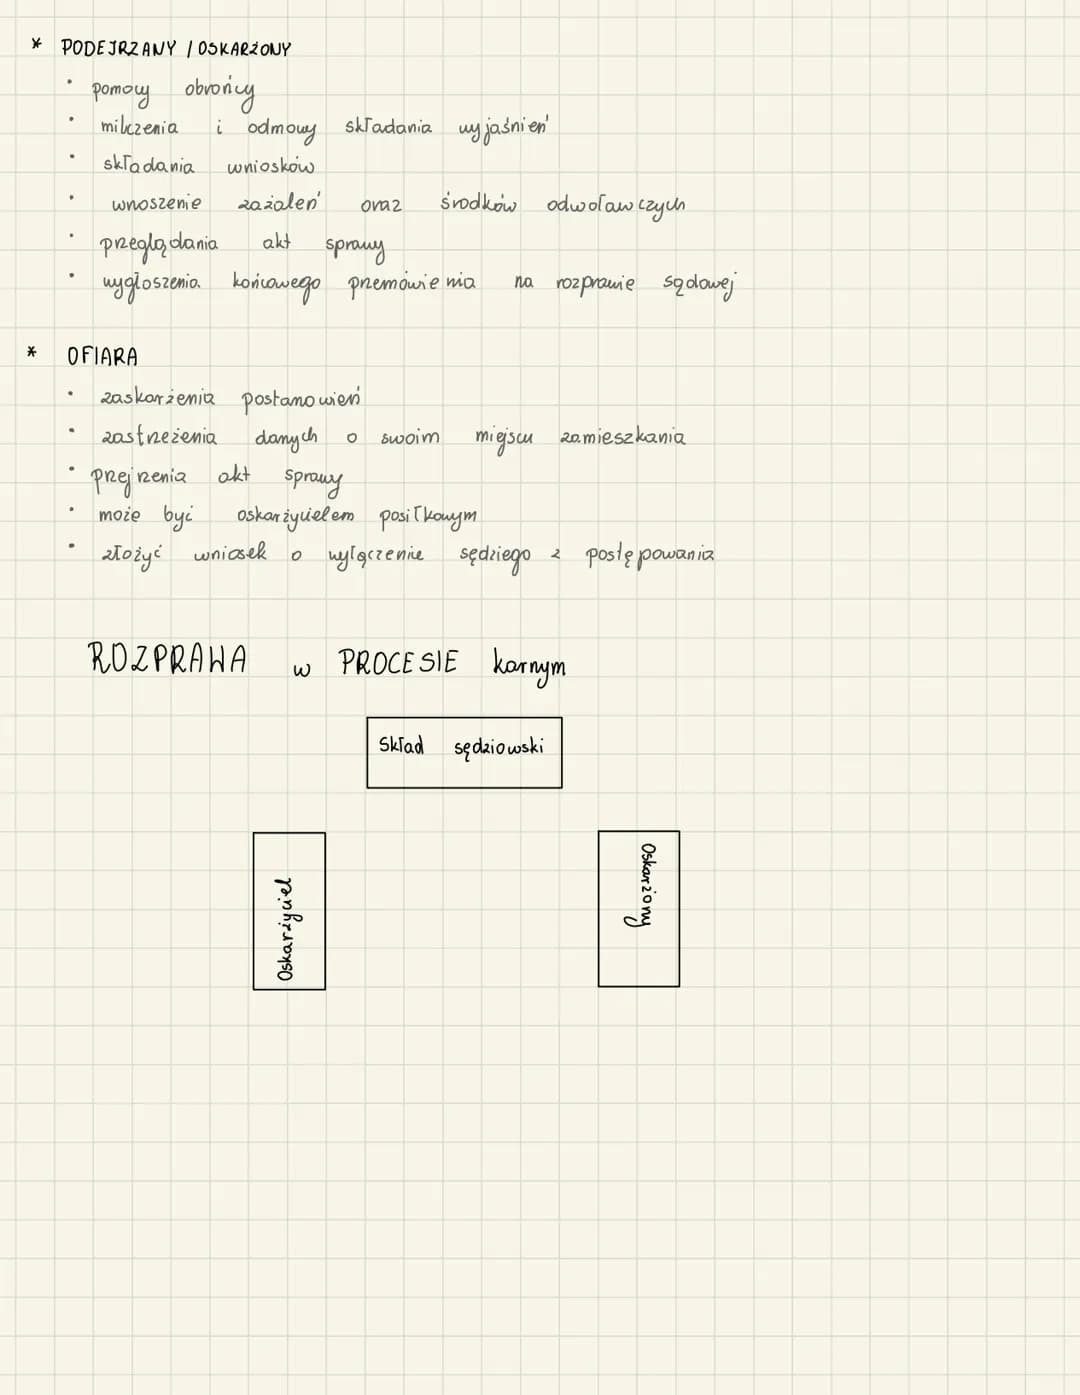 * PODEJRZANY / OSKARŻONY
• pomocy obrońcy
• milczenia i odmowy składania wyjaśnień
• składania wniosków
• wnoszenie zażaleń oraz środków odwoławczych
• przeglądania akt sprawy
• wygłoszenia końcowego przemówienia na rozprawie sądowej
* OFIARA
• zaskarżenia postanowień
• zastrzeżenia danych o swoim miejscu zamieszkania
• przejrzenia akt sprawy
• może być oskarżycielem posiłkowym
• złożyć wniosek o wyłączenie sędziego z postępowania
ROZPRAWA w PROCESIE karnym
Skład sędziowski
Oskarżyciel
Oskarżony